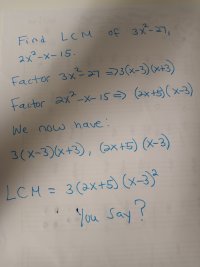 Find LCM of 3x²-27,
2x²-x-15.
Factor 3x²-27 ⇒ 3(x-3)(x+3)
Factor 2x²-x-15 ⇒ (2x+5)(x-3)
We now have:
3(x-3)(x+3), (2x+5)(x-3)
LCM = 3(2x+5)(x-3)²
You Say?